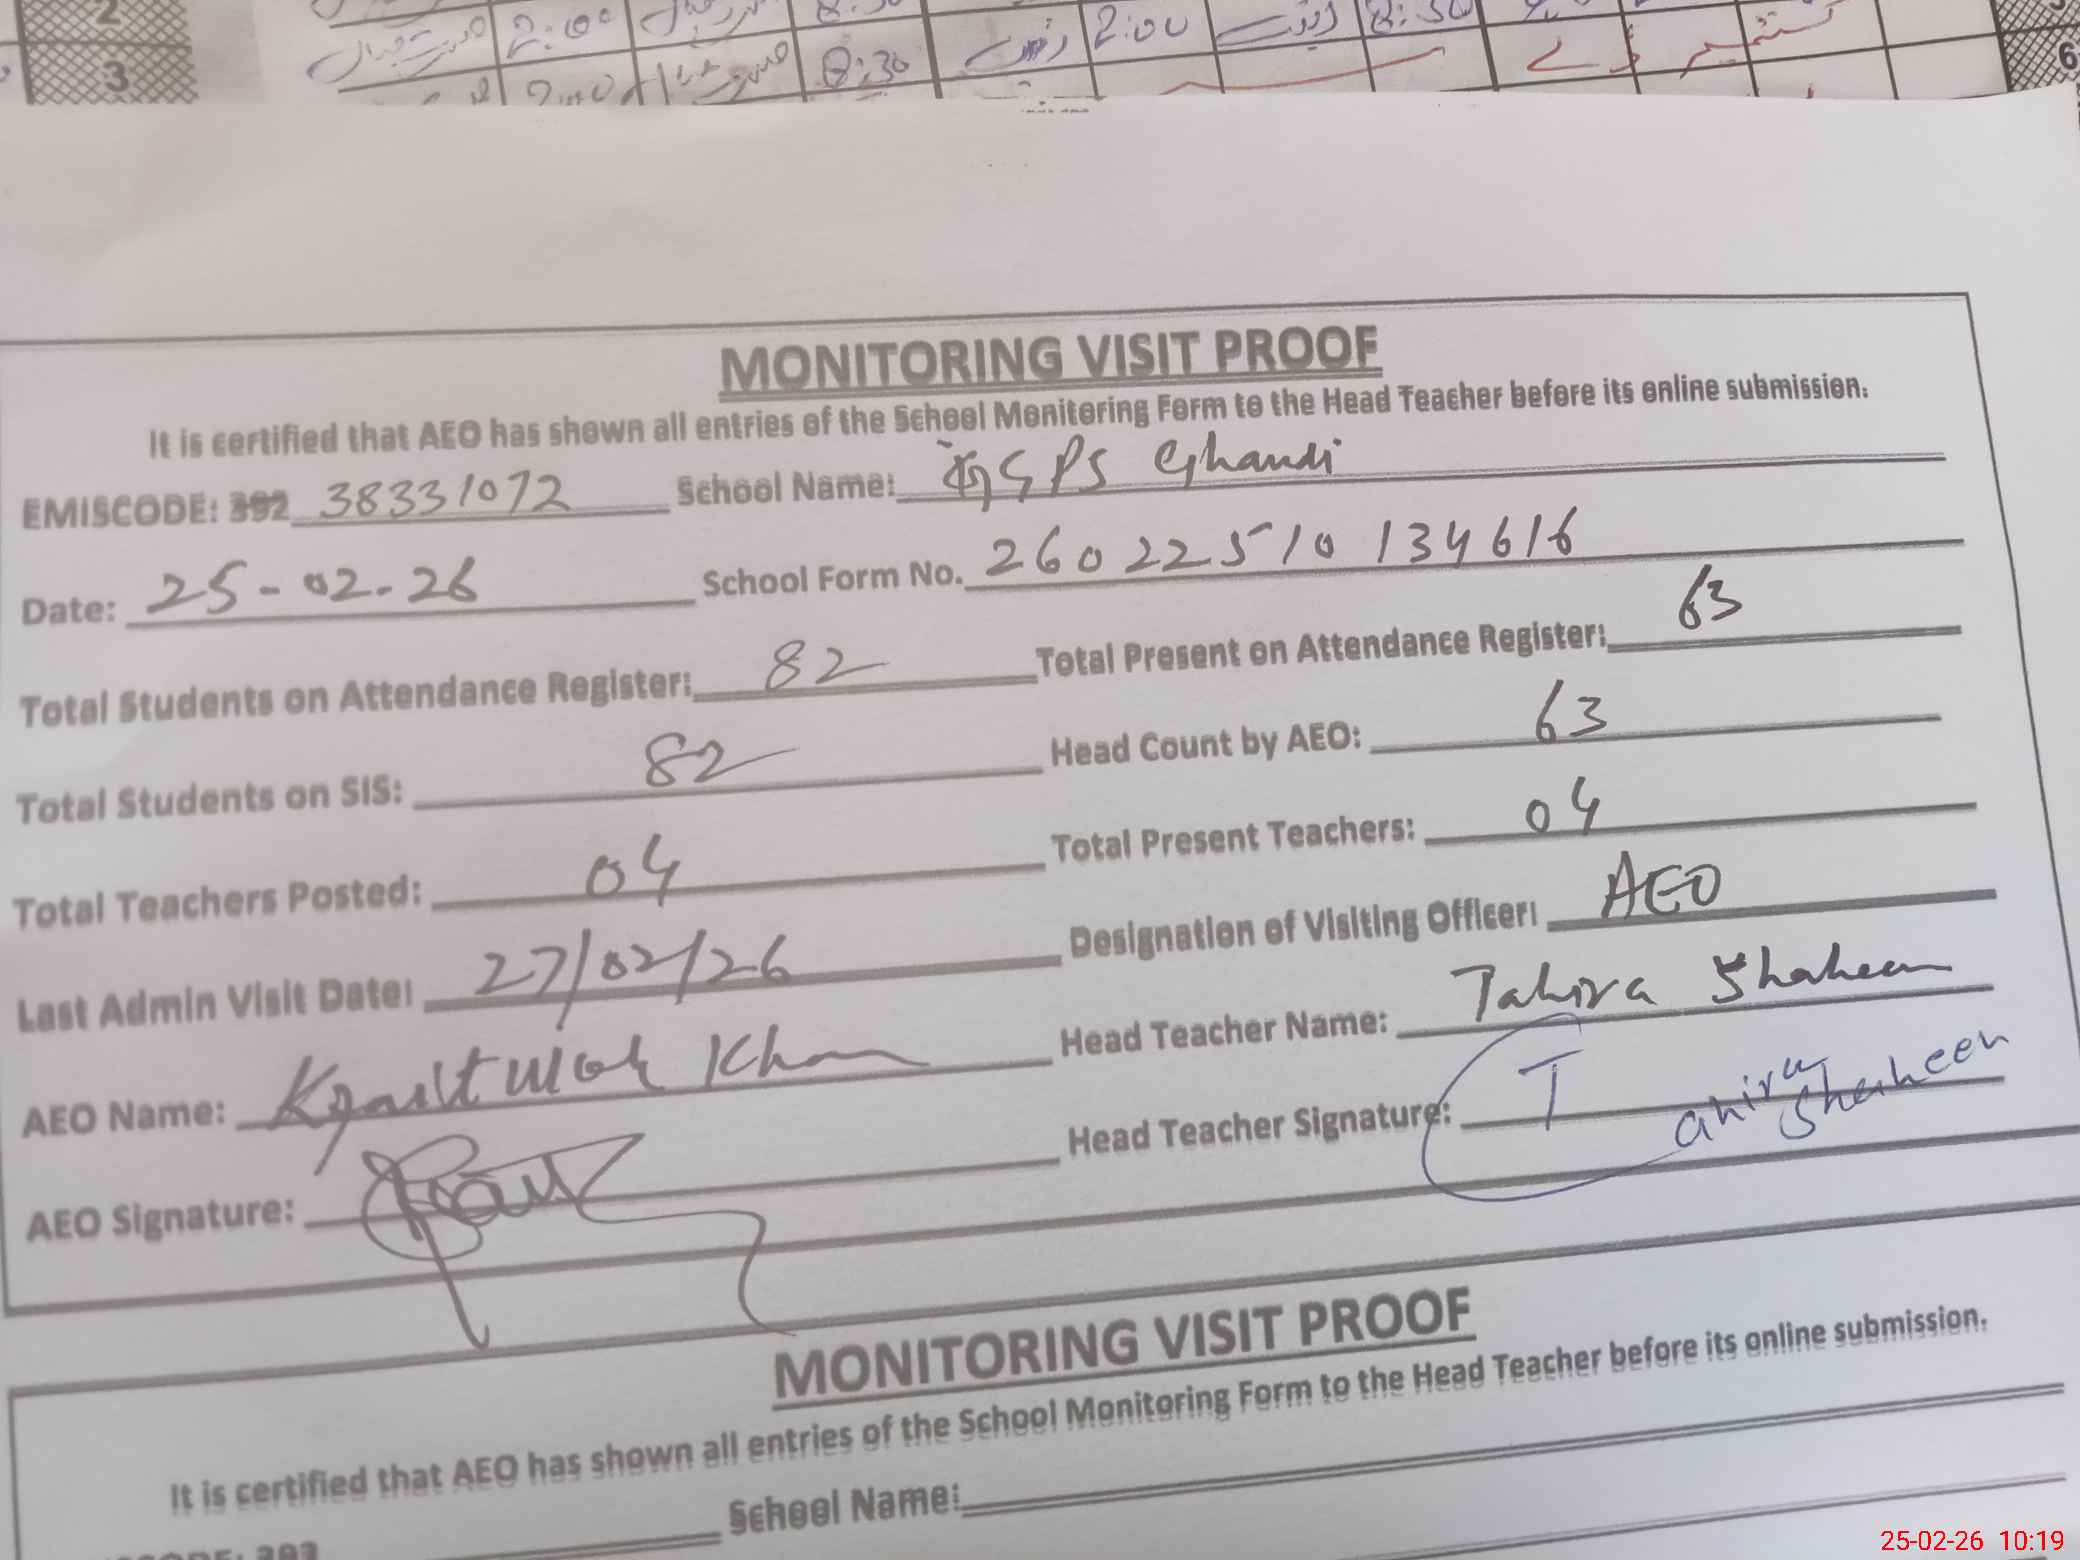 2 2:00 8:30
3 2:00 8:30 زینب 2:00 زینب 8:30 6
MONITORING VISIT PROOF
It is certified that AEO has shown all entries of the School Monitoring Form to the Head Teacher before its online submission.
EMISCODE: 392 38331072 School Name: GPS Ghandi
Date: 25-02-26 School Form No. 26022510134616
Total Students on Attendance Register: 82 Total Present on Attendance Register: 63
Total Students on SIS: 82 Head Count by AEO: 63
Total Teachers Posted: 04 Total Present Teachers: 04
Last Admin Visit Date: 27/02/26 Designation of Visiting Officer: AEO
AEO Name: Khan Head Teacher Name: Tahira Shaheen
AEO Signature: Head Teacher Signature: Tahira Shaheen
MONITORING VISIT PROOF
It is certified that AEO has shown all entries of the School Monitoring Form to the Head Teacher before its online submission.
School Name:
25-02-26 10:19